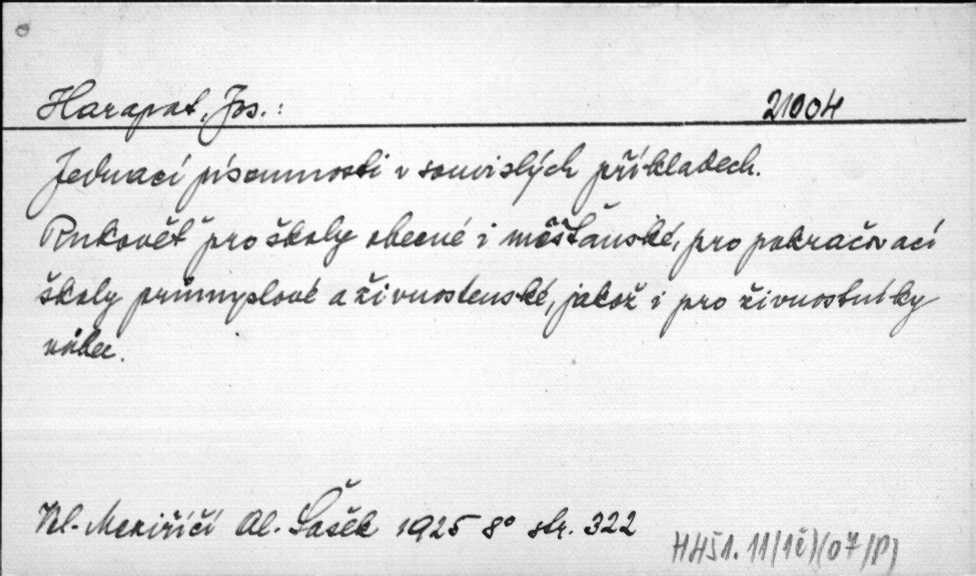 Harapat, Jos.: 21004
Jednací písemnosti v souvislých příkladech.
Rukověť pro školy obecné i měšťanské, pro pokračovací
školy průmyslové a živnostenské, jakož i pro živnostníky
vůbec.
Vel. Meziříčí Al. Šašek 1925 8° str. 322